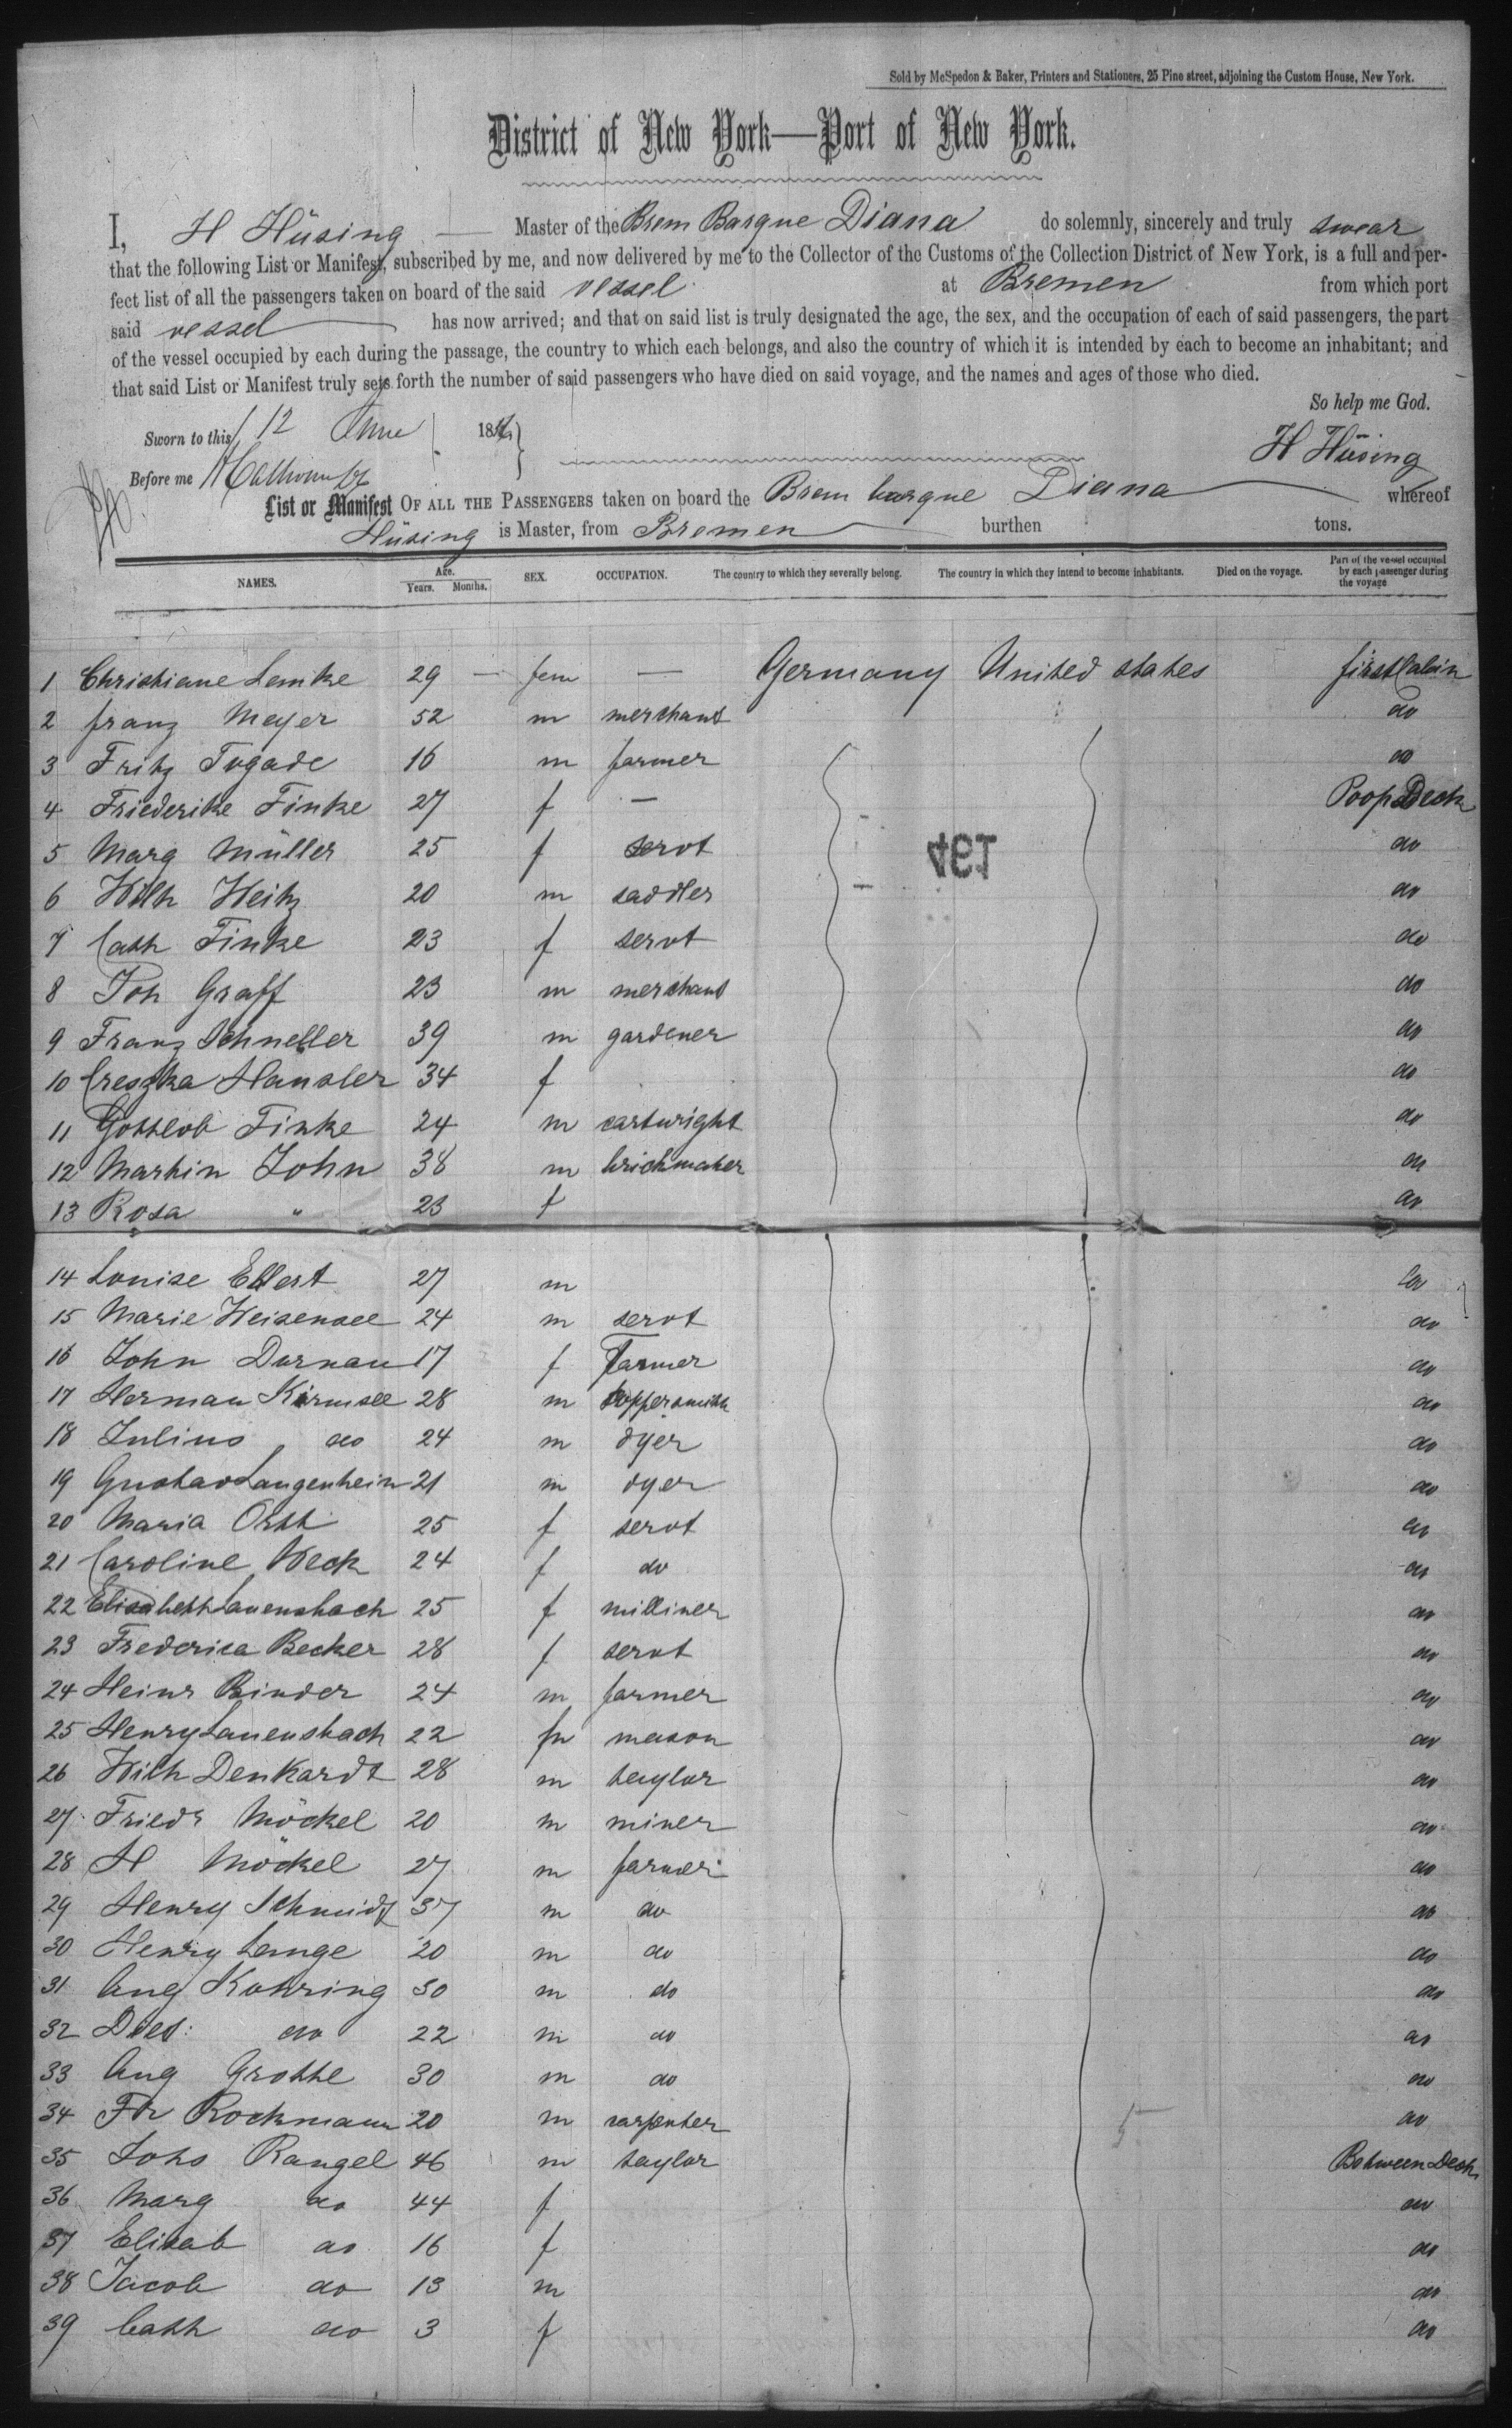 Sold by McSpedon & Baker, Printers and Stationers, 25 Pine street, adjoining the Custom House, New York.
District of New York—Port of New York.
I, H Hüsing — Master of the Brem Barque Diana do solemnly, sincerely and truly swear
that the following List or Manifest, subscribed by me, and now delivered by me to the Collector of the Customs of the Collection District of New York, is a full and per-
fect list of all the passengers taken on board of the said vessel at Bremen from which port
said vessel has now arrived; and that on said list is truly designated the age, the sex, and the occupation of each of said passengers, the part
of the vessel occupied by each during the passage, the country to which each belongs, and also the country of which it is intended by each to become an inhabitant; and
that said List or Manifest truly sets forth the number of said passengers who have died on said voyage, and the names and ages of those who died.
So help me God.
Sworn to this 12 June 18
H Hüsing
Before me
List or Manifest OF ALL THE PASSENGERS taken on board the Brem barque Diana whereof
Hüsing is Master, from Bremen burthen tons.
NAMES. Age. Years. Months. SEX. OCCUPATION. The country to which they severally belong. The country in which they intend to become inhabitants. Died on the voyage. Part of the vessel occupied by each passenger during the voyage
1 Christiane Lemke 29 — fem — Germany United states first Cabin
2 franz Meyer 52 m merchant do
3 Fritz Togade 16 m farmer do
4 Friederike Finke 27 f — Poop Deck
5 Marg Müller 25 f servt do
194
6 Wilh Heitz 20 m saddler do
7 Cath Finke 23 f servt do
8 Joh Graff 23 m merchant do
9 Franz Schneller 39 m gardener do
10 Creszka Hansler 34 f do
11 Gottlob Finke 24 m cartwright do
12 Martin John 38 m brickmaker do
13 Rosa " 23 f do
14 Louise Ellert 27 m do
15 Marie Weisensee 24 m servt do
16 John Durnau 17 f Farmer do
17 Herman Kirmsee 28 m coppersmith do
18 Julius do 24 m dyer do
19 Gustav Langenhein 21 m dyer do
20 Maria Orth 25 f servt do
21 Caroline Weck 24 f do do
22 Elisabeth Lauensbach 25 f milliner do
23 Frederica Becker 28 f servt do
24 Heinr Binder 24 m farmer do
25 Henry Lauensbach 22 m mason do
26 Wilh Denkardt 28 m taylor do
27 Friedr Möckel 20 m miner do
28 H Möckel 27 m farmer do
29 Henry Schmidt 37 m do do
30 Henry Lange 20 m do do
31 Aug Kohring 30 m do do
32 Died: do 22 m do do
33 Aug Grothe 30 m do do
34 Fr Rockmann 20 m carpenter do
35 Johs Rangel 46 m taylor Between Deck
36 Marg do 44 f do
37 Elisab do 16 f do
38 Jacob do 13 m do
39 Cath do 3 f do